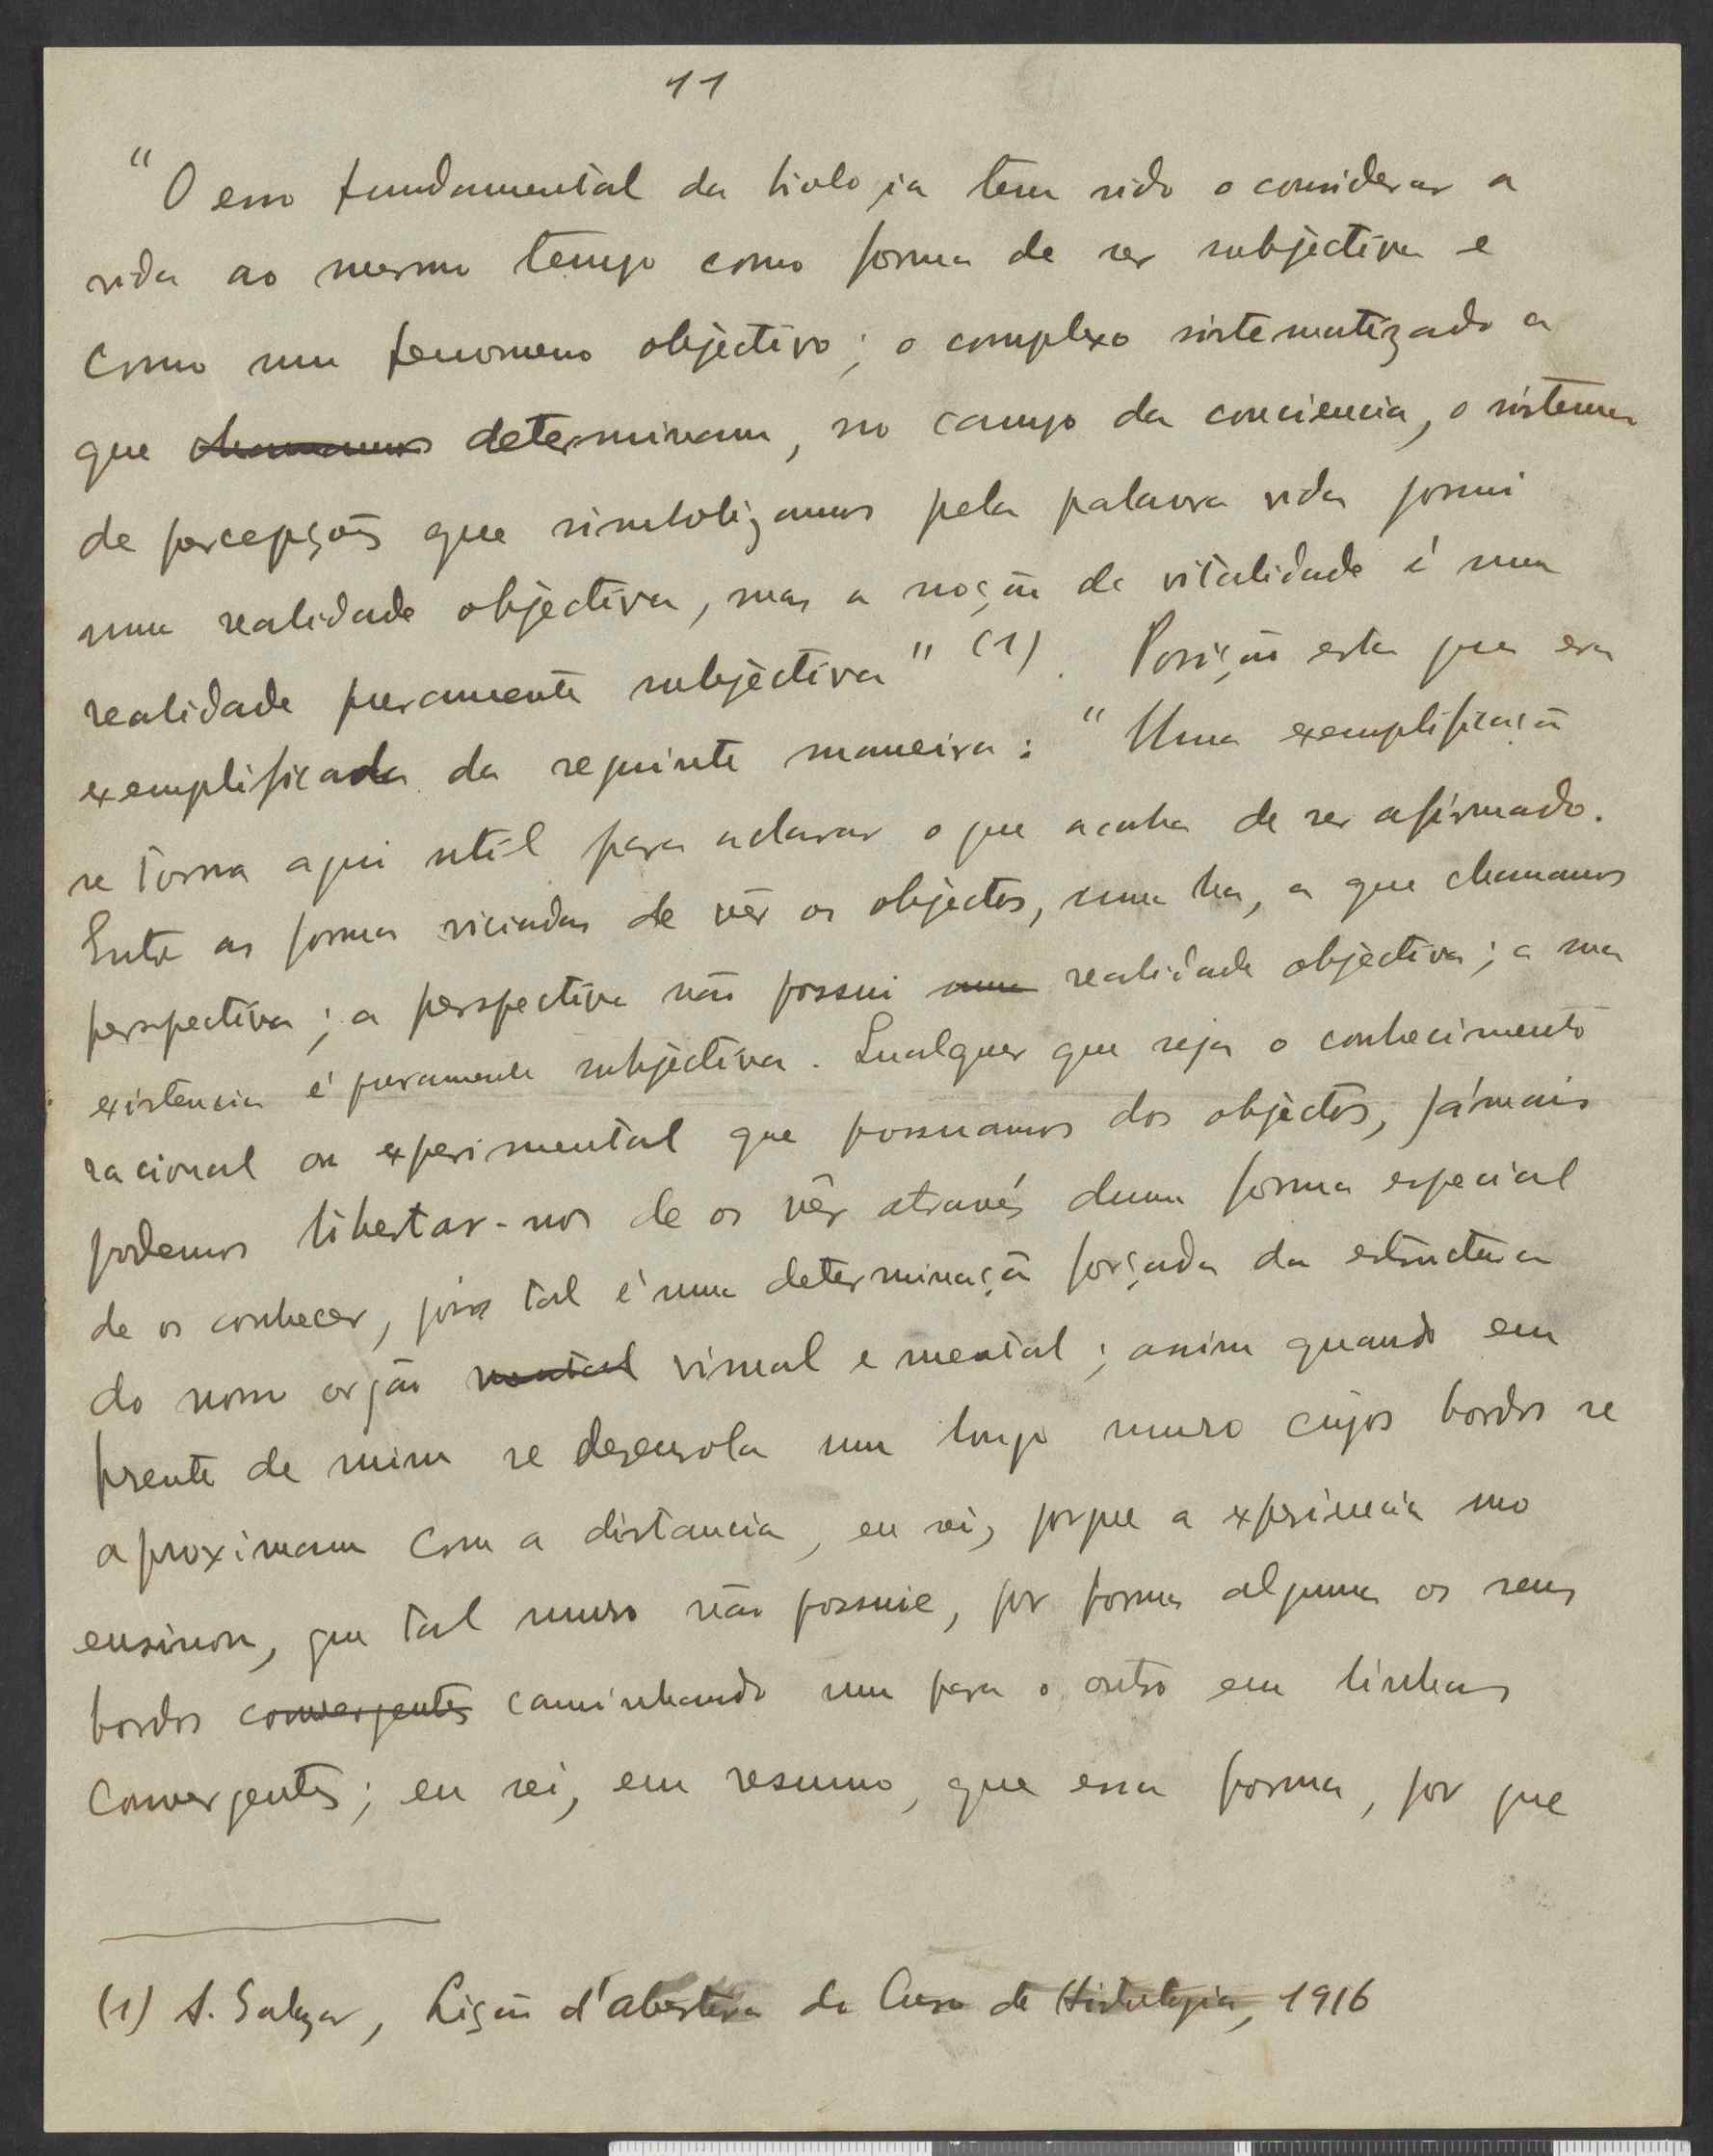 11
"O erro fundamental da biologia tem sido o considerar a
vida ao mesmo tempo como forma de ser subjectiva e
como um fenomeno objectivo; o complexo sistematizado a
que chamamos determinam, no campo da conciencia, o sistema
de percepções que simbolizamos pela palavra vida possui
uma realidade objectiva, mas a noção de vitalidade é uma
realidade puramente subjectiva" (1). Posição esta que era
exemplificada da seguinte maneira: "Uma exemplificação
se torna aqui util para aclarar o que acaba de ser afirmado.
Entre as formas viciadas de vêr os objectos, uma ha, a que chamamos
perspectiva; a perspectiva não possui uma realidade objectiva; a sua
existencia é puramente subjectiva. Qualquer que seja o conhecimento
racional ou experimental que possuamos dos objectos, jámais
podemos libertar-nos de os vêr através duma forma especial
de os conhecer, pois tal é uma determinação forçada da estructura
do nosso orgão mental visual e mental; assim quando em
frente de mim se desenrola um longo muro cujos bordos se
aproximam com a distancia, eu sei, porque a experiencia mo
ensinou, que tal muro não possuie, por forma alguma os seus
bordos convergentes caminhando um para o outro em linhas
convergentes; eu sei, em resumo, que essa forma, por que
(1) A. Salazar, Lição d'abertura do Curso de Histologia, 1916